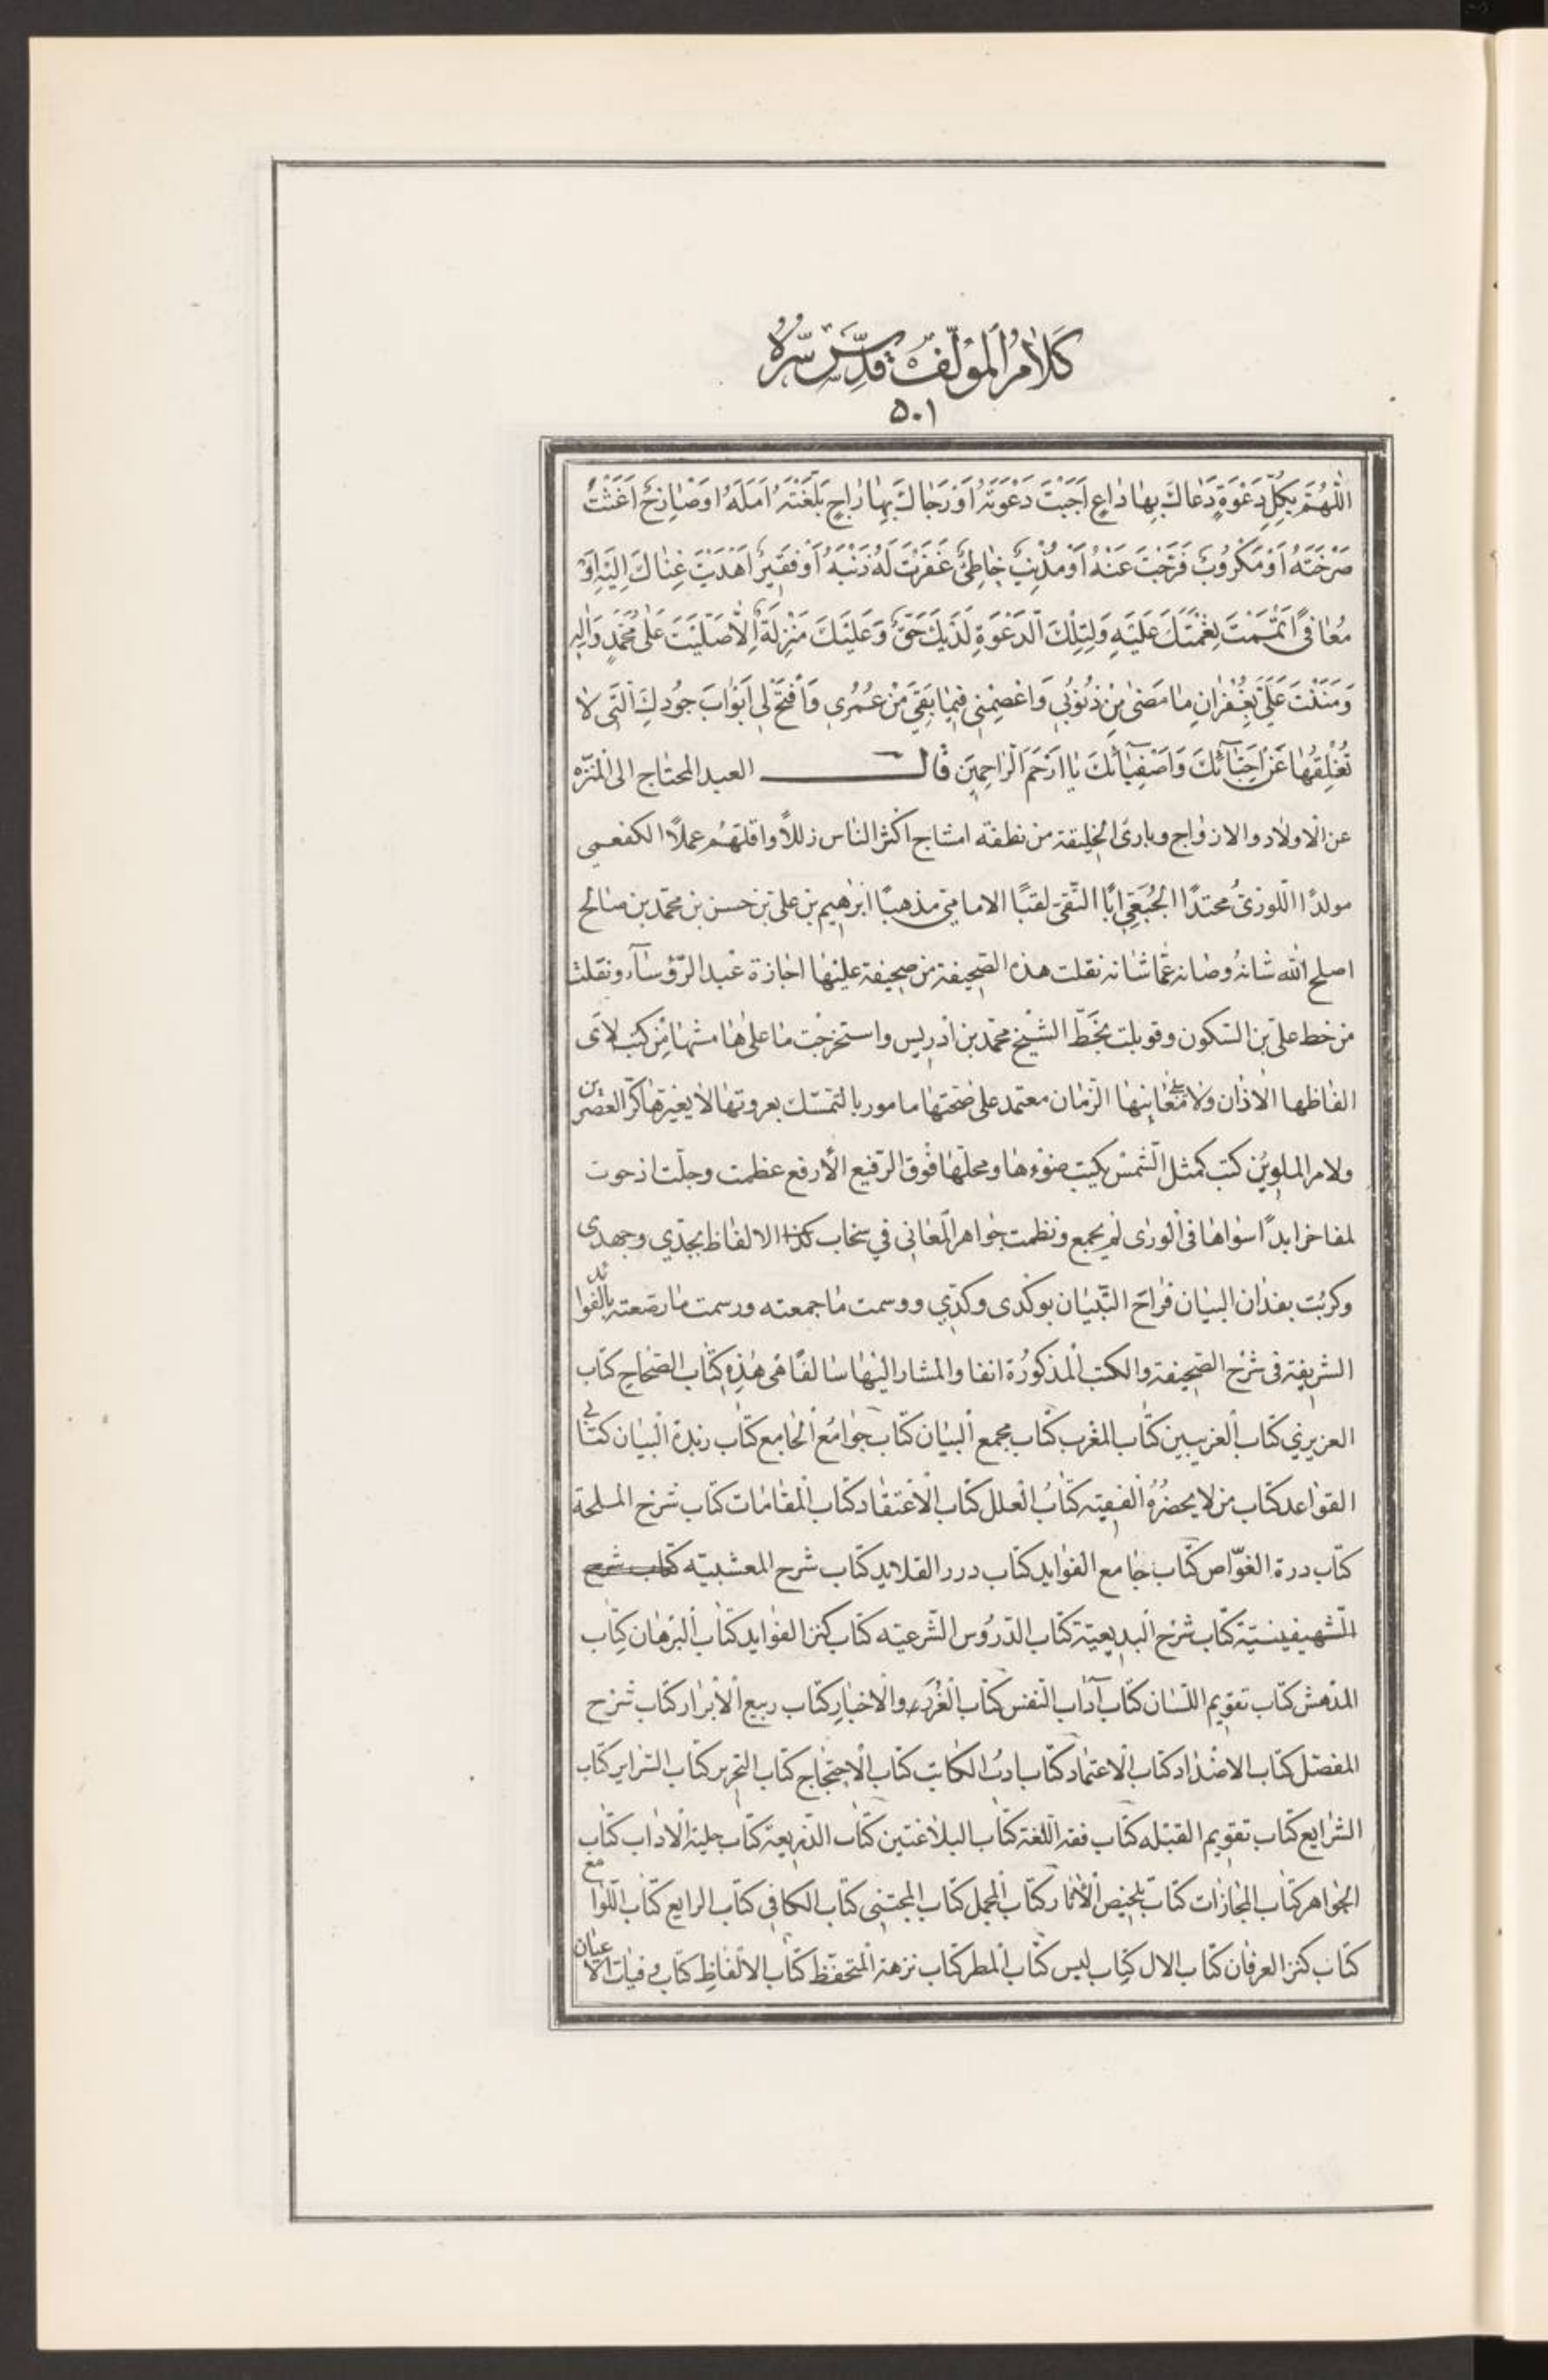 كَلٰامُ الْمُؤَلِّفِ قُدِّسَ سِرُّهُ
۵۰۱
اَللّٰهُمَّ بِكُلِّ دَعْوَةٍ دَعٰاكَ بِهٰا دٰاعٍ اَجَبْتَ دَعْوَتَهُ اَوْ رَجٰاكَ بِهٰا رٰاجٍ بَلَّغْتَهُ اَمَلَهُ اَوْ صٰارِخٌ اَغَثْتَ
صَرْخَتَهُ اَوْ مَكْرُوبٌ فَرَّجْتَ عَنْهُ اَوْ مُذْنِبٌ خٰاطِئٌ غَفَرْتَ لَهُ ذَنْبَهُ اَوْ فَقيرٌ اَهْدَيْتَ غِنٰاكَ اِلَيْهِ اَوْ
مُعٰافىً اَتْمَمْتَ نِعْمَتَكَ عَلَيْهِ وَلِتِلْكَ الدَّعْوَةِ لَدَيْكَ حَقٌّ وَعَلَيْكَ مَنْزِلَةٌ اِلّٰا صَلَّيْتَ عَلىٰ مُحَمَّدٍ وَاٰلِهِ
وَمَنَنْتَ عَلَيَّ بِغُفْرٰانِ مٰا مَضىٰ مِنْ ذُنُوبي وَاعْصِمْني فيمٰا بَقِيَ مِنْ عُمُري وَافْتَحْ لي اَبْوٰابَ جُودِكَ الَّتي لٰا
تُغْلِقُهٰا عَنْ اَحِبّٰآئِكَ وَاَصْفِيٰآئِكَ يٰا اَرْحَمَ الرّٰاحِمينَ قٰالَ العبد المحتاج الى المنزّه
عن الاولاد والازواج وبارئ الخليقة من نطفة امشاج اكثر الناس زللًا واقلّهم عملًا الكفعمي
مولدًا اللوزيّ محتدًا الجبعي ابًا التّقي لقبًا الامامي مذهبًا ابرٰهيم بن علي بن حسن بن محمّد بن صالح
اصلح الله شانه وصانه عمّا شانه نقلت هذه الصّحيفة من صحيفة عليها اجازة عميد الرّؤساء ونقلت
من خط علي بن السّكون وقوبلت بخطّ الشّيخ محمّد بن ادريس واستخرجت ما على هامشها من كتب لا ترى
الفاظها الاذان ولا معانيها الزّمان معتمد على صحّتها مامور بالتمسّك بعروتها لا يغيّرها كرّ العصرين
ولا مر الملوين كتب كمثل الشّمس يكتب ضوءها ومحلّها فوق الرّفيع الارفع عظمت وجلّت اذ حوت
لمفاخر ابدًا سواها في الورى لم يجمع ونظمت جواهر المعاني في سخاب الالفاظ بجدّي وجهدي
وكربت بفدان البيان قراح التّبيان بوكدى وكدّي ووسمت ما جمعته ورسمت ما رصّعته بالفوائد
الشريفة في شرح الصّحيفة والكتب المذكورة انفا والمشار اليها سالفًا هي هٰذه كتاب الصّحاح كتاب
العزيزي كتاب الغريبين كتاب المغرب كتاب مجمع البيان كتاب جوامع الجامع كتاب زبدة البيان كتابي
القواعد كتاب من لا يحضره الفقيه كتاب العلل كتاب الاعتقاد كتاب المقامات كتاب شرح الملحة
كتاب درة الغوّاص كتاب جامع الفوايد كتاب درر القلايد كتاب شرح
الشّهيفينيّة كتاب شرح البديعيّة كتاب الدّروس الشّرعيّه كتاب كنز الفوايد كتاب البرهان كتاب
المدهش كتاب تقويم اللّسان كتاب آداب النّفس كتاب الغرر والاخبار كتاب ربيع الابرار كتاب شرح
المفصّل كتاب الاضداد كتاب الاعتماد كتاب ادب الكاتب كتاب الاحتجاج كتاب التحرير كتاب السّراير كتاب
الشرايع كتاب تقويم القبله كتاب فقه اللّغة كتاب البلاغتين كتاب الذّريعة كتاب حلية الاداب كتاب
الجواهر كتاب المجازات كتاب تلخيص الآثار كتاب المجمل كتاب المجتبى كتاب الكافي كتاب الرايع كتاب اللّوامع
كتاب كنز العرفان كتاب الال كتاب ليس كتاب المطر كتاب نزهة المتحفّظ كتاب الالفاظ كتاب وفيات الاعيان